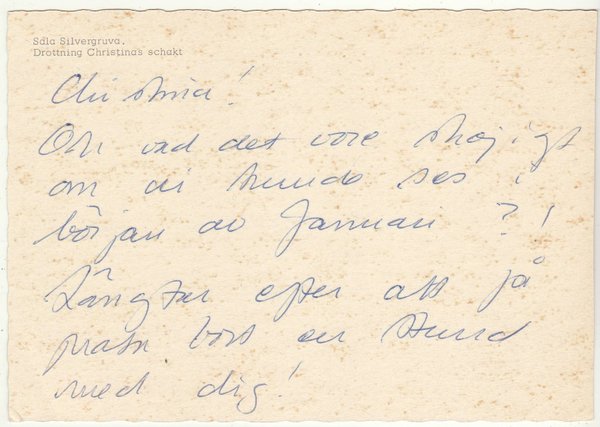 Sala Silvergruva.
Drottning Christina's schakt
Christina!
Oh vad det vore skojigt
om vi kunde ses i
början av Januari ?!
Längtar efter att få
prata bort en stund
med dig!